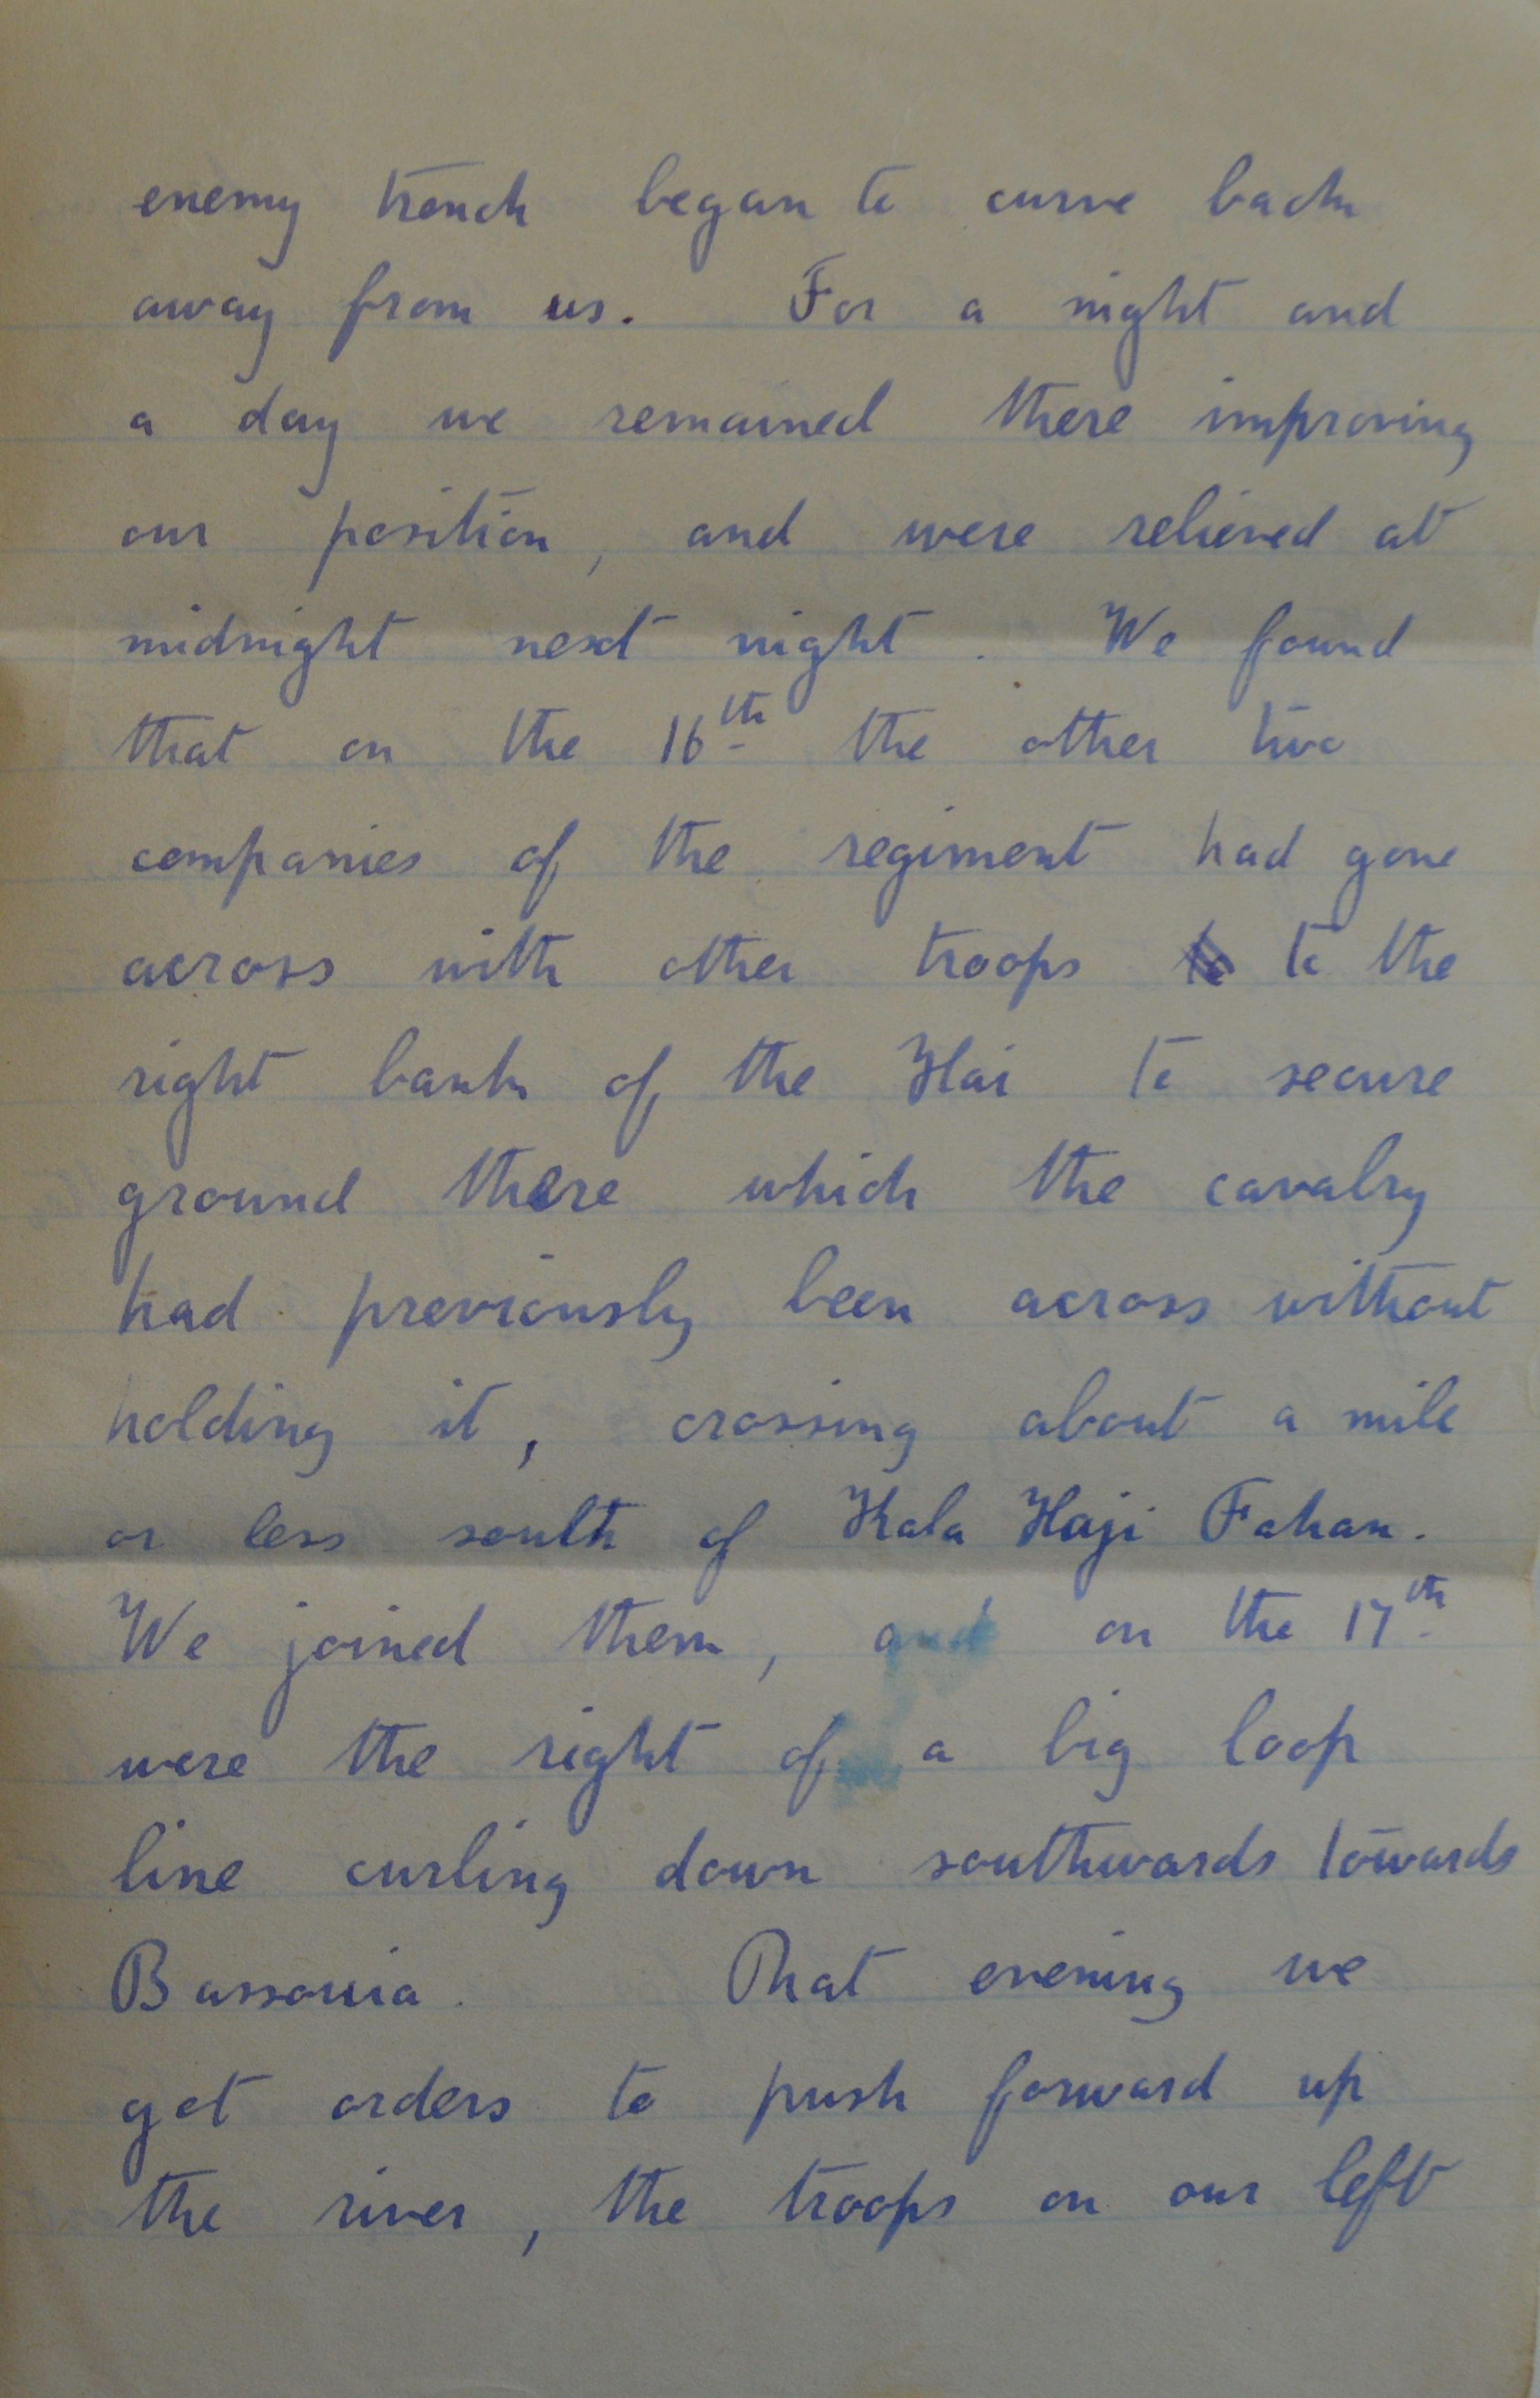 enemy trench began to curve back
away from us. For a night and
a day we remained there improving
our position, and were relieved at
midnight next night. We found
that on the 16th the other two
companies of the regiment had gone
across with other troops to to the
right bank of the Hai to secure
ground there which the cavalry
had previously been across without
holding it, crossing about a mile
or less south of Kala Haji Fahan.
We joined them, and on the 17th
were the right of a big loop
line curling down southwards towards
Bassouia. That evening we
got orders to push forward up
the river, the troops on our left